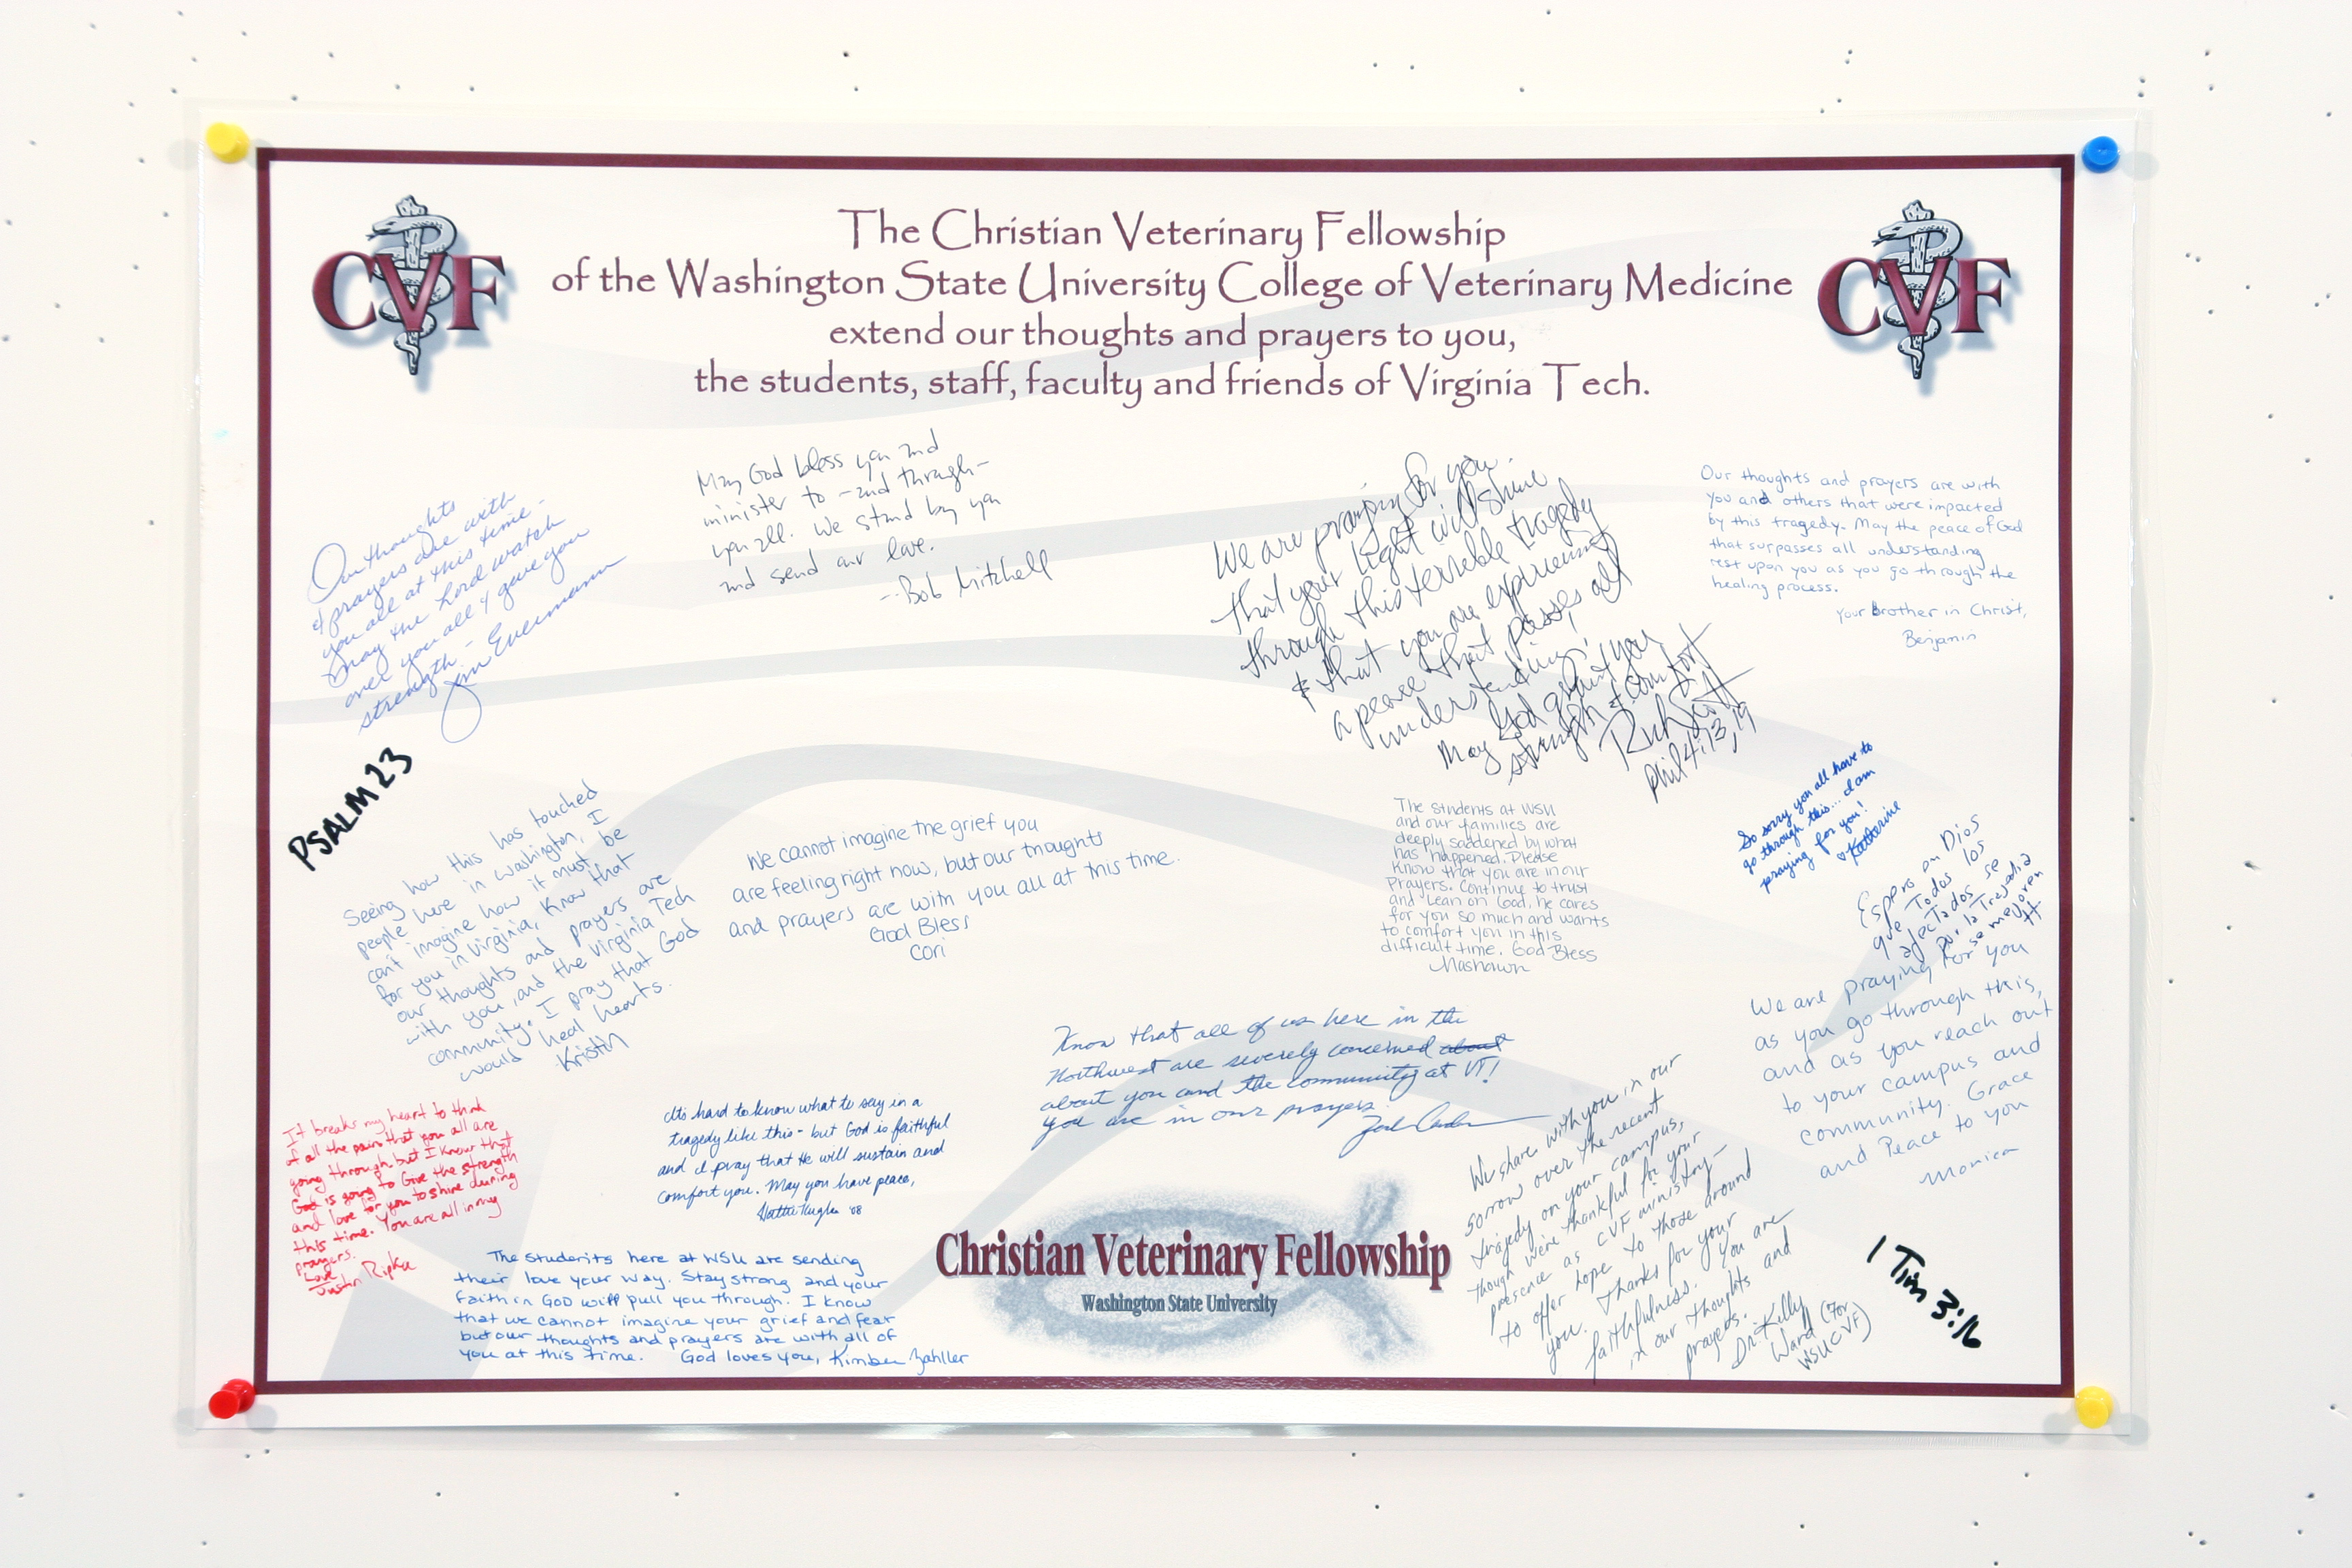 CVF
The Christian Veterinary Fellowship
of the Washington State University College of Veterinary Medicine
extend our thoughts and prayers to you,
the students, staff, faculty and friends of Virginia Tech.
CVF
Our thoughts
& prayers are with
you all at this time -
may the Lord watch
over you all & give you
strength -
Jim Evermann
May God bless you and
minister to - and through -
you all. We stand by you
and send our love.
-- Bob Mitchell
We are praying for you.
that your light will shine
through this terrible tragedy
& that you are experiencing
a peace that passes all
understanding!
May God grant you
strength & comfort
Phil 4:13,19
Our thoughts and prayers are with
you and others that were impacted
by this tragedy. May the peace of God
that surpasses all understanding
rest upon you as you go through the
healing process.
Your brother in Christ,
Benjamin
PSALM 23
Seeing how this has touched
people here in Washington, I
can't imagine how it must be
for you in Virginia. Know that
our thoughts and prayers are
with you, and the Virginia Tech
community. I pray that God
would heal hearts.
Kristin
We cannot imagine the grief you
are feeling right now, but our thoughts
and prayers are with you all at this time.
God Bless
Cori
The students at WSU
and our families are
deeply saddened by what
has happened. Please
know that you are in our
prayers. Continue to trust
and lean on God, he cares
for you so much and wants
to comfort you in this
difficult time. God Bless
Nashawn
So sorry you all have to
go through this... I am
praying for you!
♡ Katherine
Espero en Dios
que Todos los
afecTados se
por la Tragedia
se mejoren
We are praying for you
as you go through this,
and as you reach out
to your campus and
community. Grace
and Peace to you
Monica
Know that all of us here in the
Northwest are severely concerned about
about you and the community at VT!
You are in our prayers.
It breaks my heart to think
of all the pain that you all are
going through, but I know that
God is going to Give the strength
and love for you to shine during
this time. You are all in my
prayers.
Love
Justin Ripka
Its hard to know what to say in a
tragedy like this - but God is faithful
and I pray that He will sustain and
comfort you. May you have peace,
Hattie Hughes '08
The students here at WSU are sending
their love your way. Stay strong and your
faith in GOD will pull you through. I know
that we cannot imagine your grief and fear
but our thoughts and prayers are with all of
you at this time. God loves you, Kimber Zahller
Christian Veterinary Fellowship
Washington State University
We share with you in our
sorrow over the recent
tragedy on your campus,
though we're thankful for your
presence as CVF ministry -
to offer hope to those around
you. Thanks for your
faithfulness. You are
in our thoughts and
prayers.
Dr. Kelly
Ward (for
WSU CVF)
1 Tim 3:16